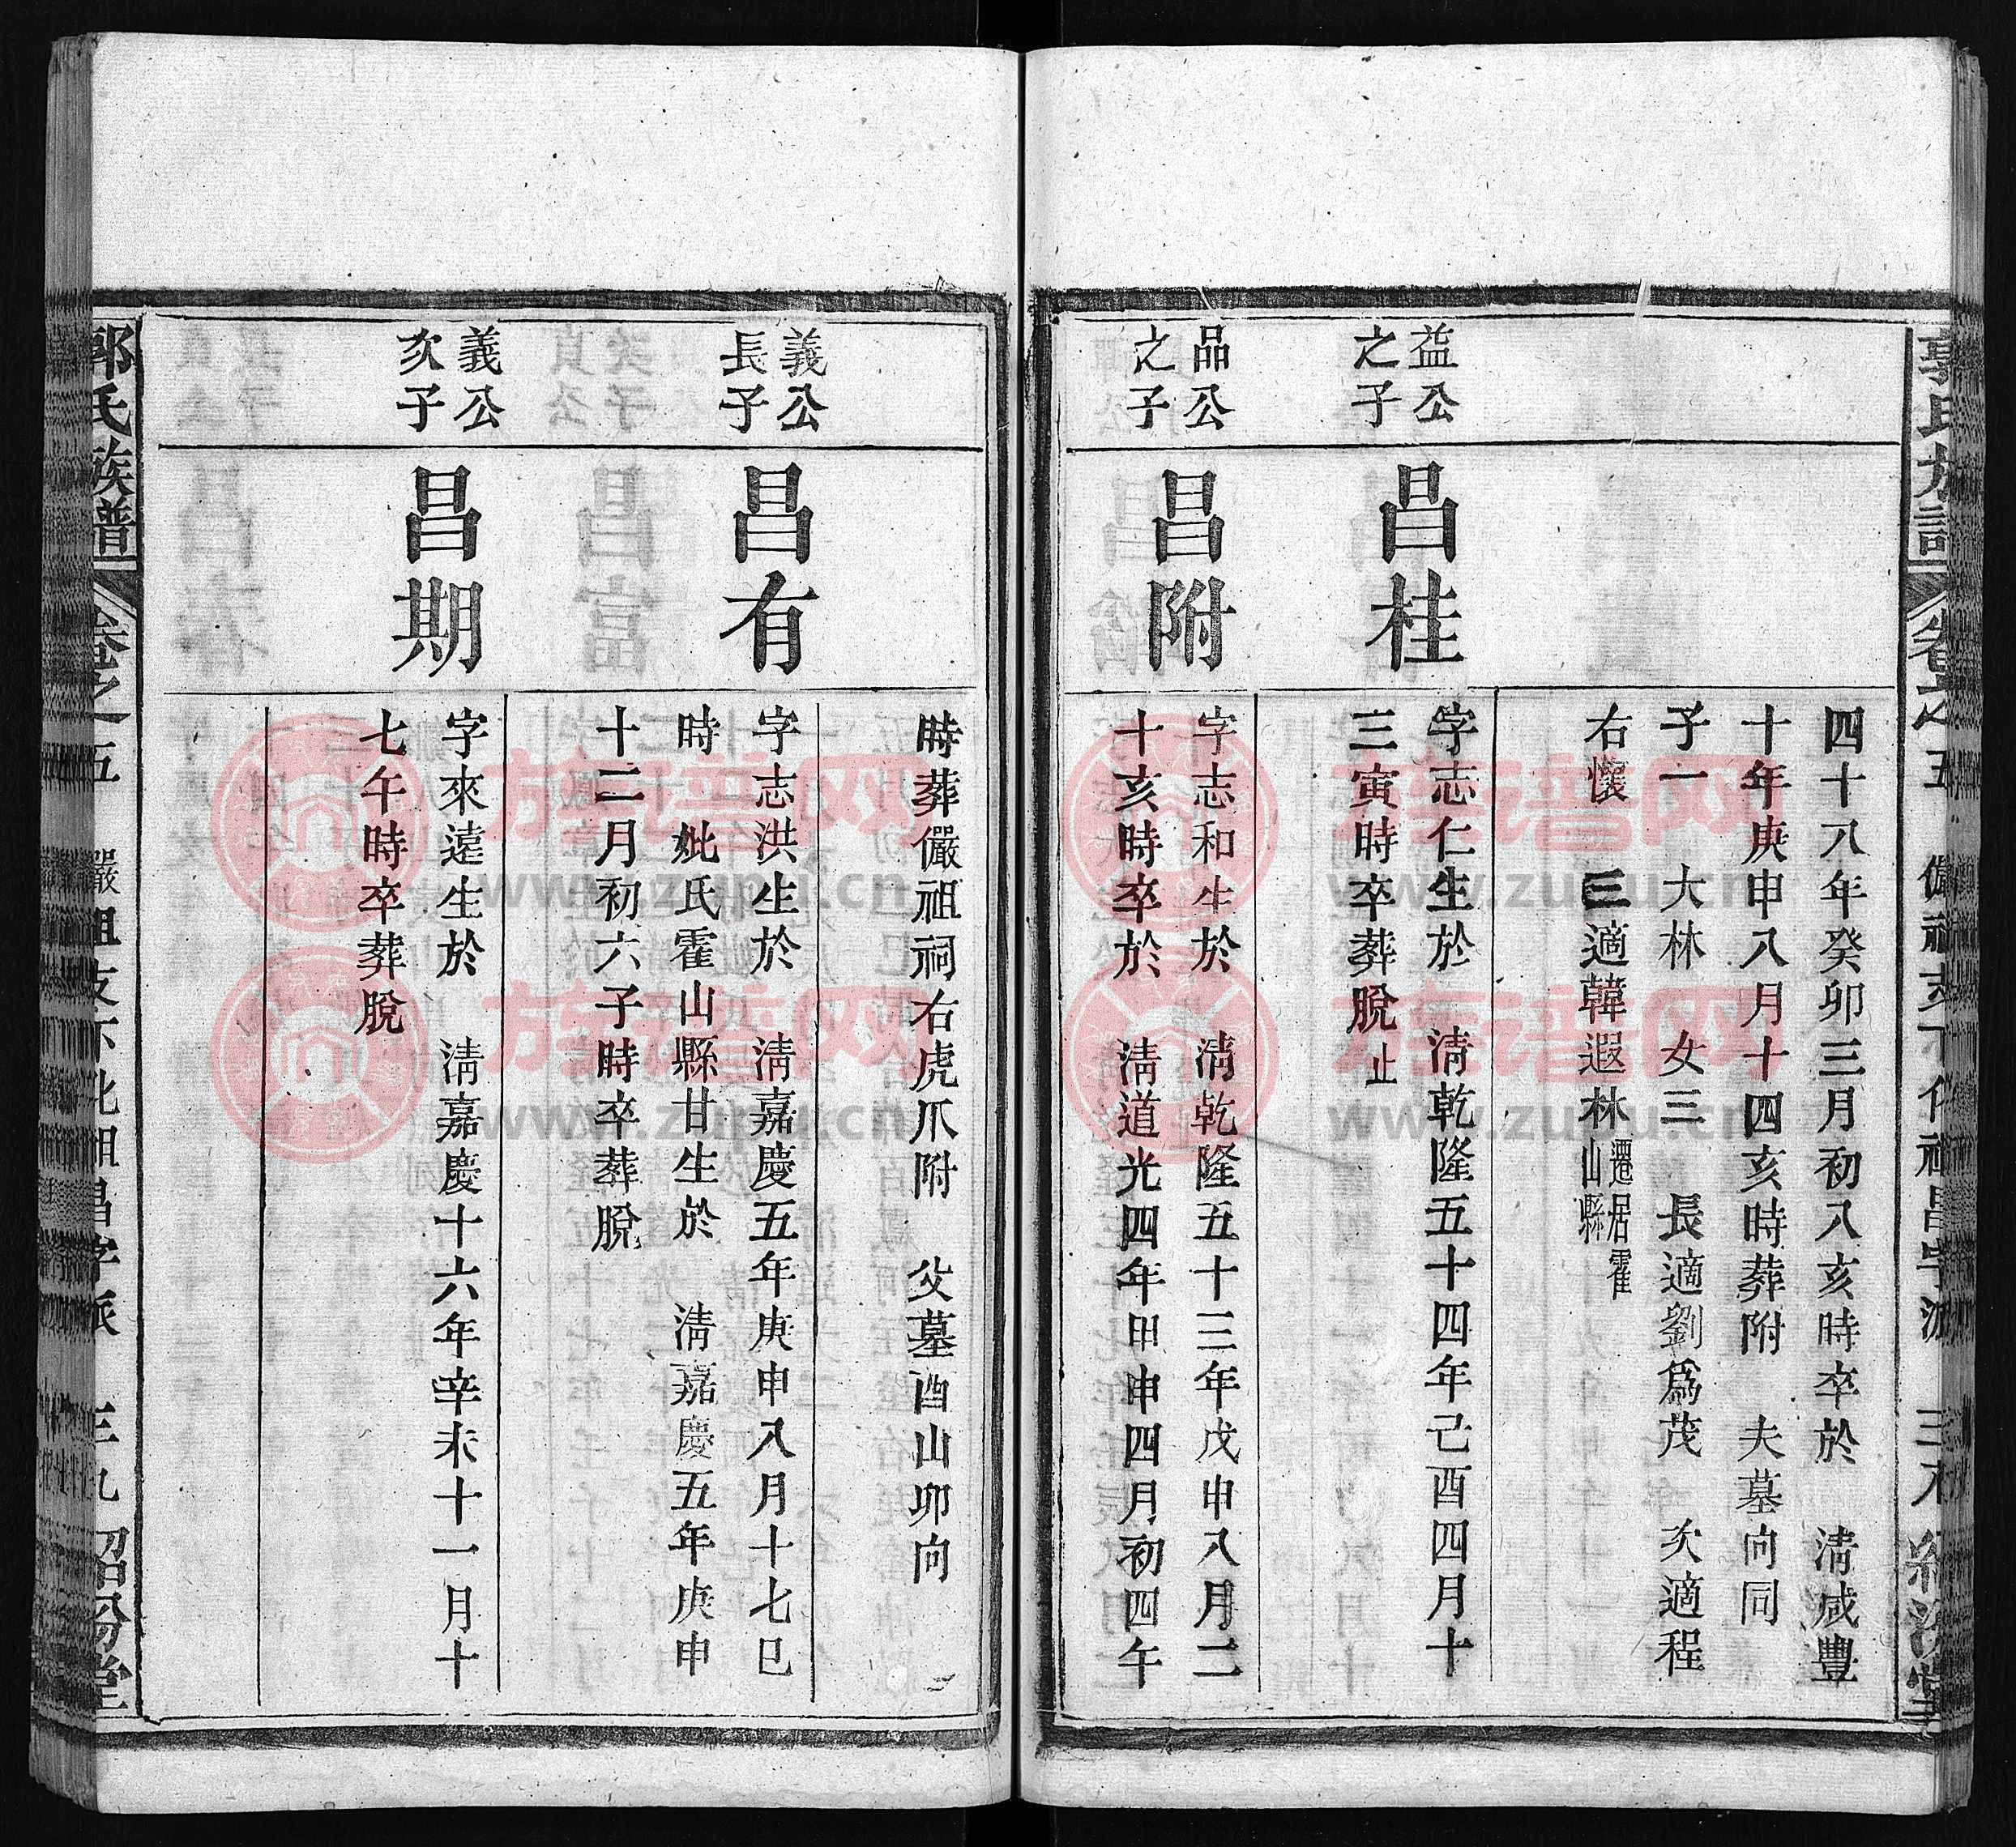 郭氏族譜 卷之五 儼祖支下化祖昌字派 三八 紹汾堂
四十八年癸卯三月初八亥時卒於 淸咸豐
十年庚申八月十四亥時葬附 夫墓向同
子一 大林 女三 長適劉爲茂 次適程
右懷 三適韓遐林 遷居霍山縣
益公之子
昌桂
字志仁生於 淸乾隆五十四年己酉四月十
三寅時卒葬脫 止
品公之子
昌附
字志和生於 淸乾隆五十三年戊申八月二
十亥時卒於 淸道光四年甲申四月初四午
時葬儼祖祠右虎爪附 父墓酉山卯向
義公長子
昌有
字志洪生於 淸嘉慶五年庚申八月十七巳
時 妣氏霍山縣甘生於 淸嘉慶五年庚申
十二月初六子時卒葬脫
義公次子
昌期
字來遠生於 淸嘉慶十六年辛未十一月十
七午時卒葬脫
郭氏族譜 卷之五 儼祖支下化祖昌字派 三九 紹汾堂
族谱网
www.zupu.cn
族谱网
www.zupu.cn
族谱网
www.zupu.cn
族谱网
www.zupu.cn